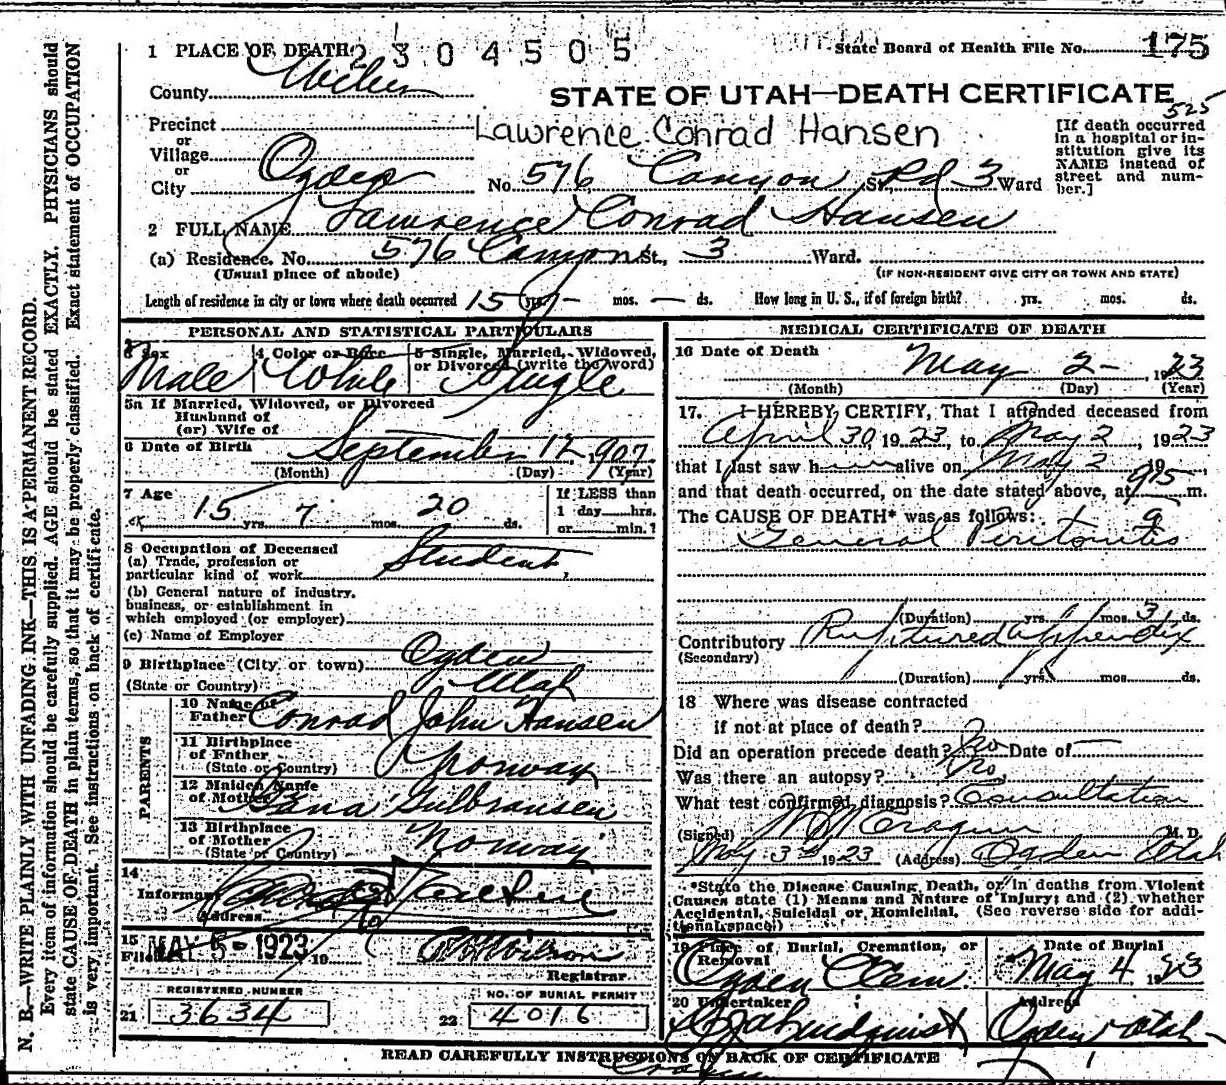 1 PLACE OF DEATH 2304505
State Board of Health File No. 175
County Weber
STATE OF UTAH—DEATH CERTIFICATE
525
Precinct
Lawrence Conrad Hansen
or
Village
or
City Ogden No. 576 Canyon St., Rd 3 Ward
[If death occurred
in a hospital or in-
stitution give its
NAME instead of
street and num-
ber.]
2 FULL NAME Lawrence Conrad Hansen
(a) Residence. No. 576 Canyon St., 3 Ward.
(Usual place of abode)
(IF NON-RESIDENT GIVE CITY OR TOWN AND STATE)
Length of residence in city or town where death occurred 15 yrs. — mos. — ds. How long in U. S., if of foreign birth? yrs. mos. ds.
PERSONAL AND STATISTICAL PARTICULARS
3 Sex
Male
4 Color or Race
White
5 Single, Married, Widowed,
or Divorced (write the word)
Single
5a If Married, Widowed, or Divorced
Husband of
(or) Wife of
6 Date of Birth September 12, 1907
(Month) (Day) (Year)
7 Age
15 yrs. 7 mos. 20 ds.
If LESS than
1 day hrs.
or min.?
8 Occupation of Deceased
(a) Trade, profession or
particular kind of work Student
(b) General nature of industry,
business, or establishment in
which employed (or employer)
(c) Name of Employer
9 Birthplace (City or town) Ogden
(State or Country) Utah
PARENTS
10 Name of
Father Conrad John Hansen
11 Birthplace
of Father
(State or Country) Norway
12 Maiden Name
of Mother Gulbransen
13 Birthplace
of Mother
(State or Country) Norway
14
Informant
Address
15
Filed MAY 5 - 1923 19 Wilson
Registrar
REGISTERED NUMBER
21 3634
NO. OF BURIAL PERMIT
22 4016
MEDICAL CERTIFICATE OF DEATH
16 Date of Death
May 2 - , 1923
(Month) (Day) (Year)
17. I HEREBY CERTIFY, That I attended deceased from
April 30 1923, to May 2, 1923
that I last saw h alive on May 2 19
and that death occurred, on the date stated above, at 915 m.
The CAUSE OF DEATH* was as follows:
General Peritonitis
(Duration) yrs. mos. 3 ds.
Contributory Ruptured appendix
(Secondary)
(Duration) yrs. mos. ds.
18 Where was disease contracted
if not at place of death?
Did an operation precede death? No Date of —
Was there an autopsy? No
What test confirmed diagnosis? Consultation
(Signed) Cragun M. D.
May 3rd 1923 (Address) Ogden Utah
*State the Disease Causing Death, or in deaths from Violent
Causes state (1) Means and Nature of Injury; and (2) whether
Accidental, Suicidal or Homicidal. (See reverse side for addi-
tional space)
19 Place of Burial, Cremation, or
Removal
Ogden Cem
Date of Burial
May 4 1923
20 Undertaker
Lindquist
Address
Ogden Utah
READ CAREFULLY INSTRUCTIONS ON BACK OF CERTIFICATE
Cragun
N. B.—WRITE PLAINLY WITH UNFADING INK—THIS IS A PERMANENT RECORD.
Every item of information should be carefully supplied. AGE should be stated EXACTLY. PHYSICIANS should
state CAUSE OF DEATH in plain terms, so that it may be properly classified. Exact statement of OCCUPATION
is very important. See instructions on back of certificate.